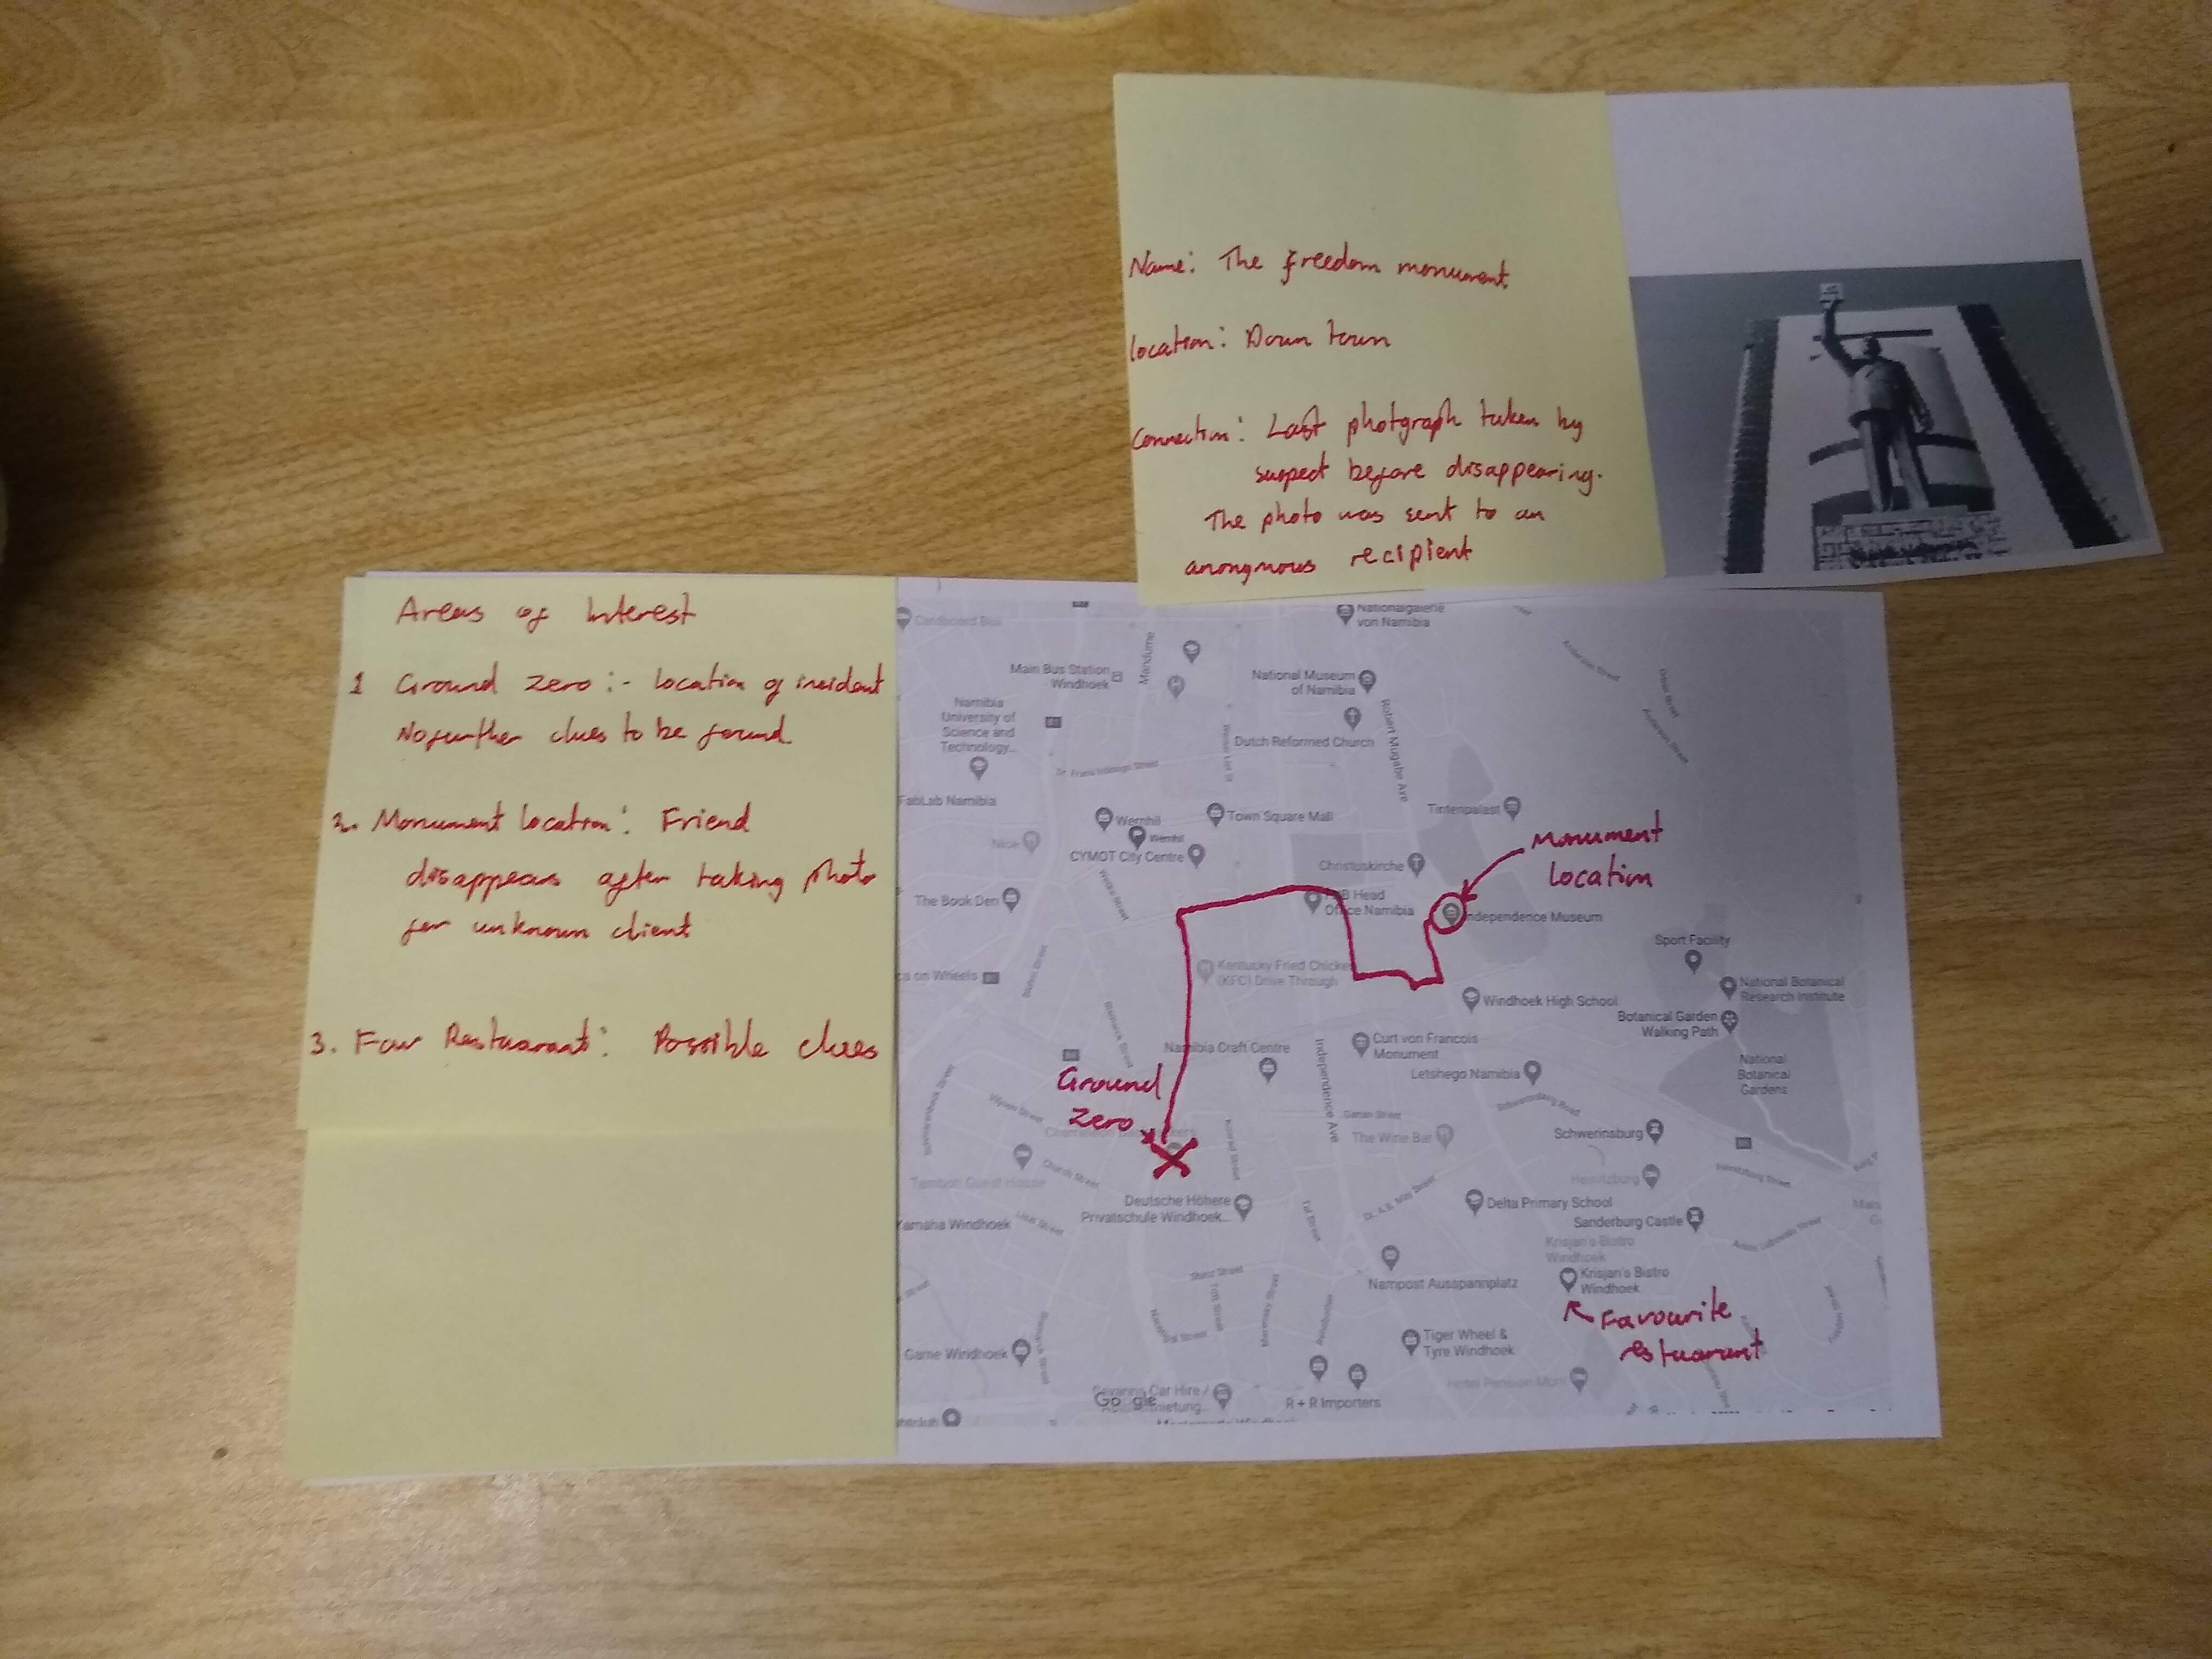 Name: The freedom monument
location: Down town
Connection: Last photgraph taken by
suspect before disappearing.
The photo was sent to an
anongmous recipient
Areas of Interest
1 Ground zero :- location of insident
No further clues to be found
2. Monument location: Friend
disappears after taking photo
for unknown client
3. Fav Restuarant: Possible clues
Nationalgalerie
von Namibia
Cardboard Box
Main Bus Station
Windhoek
Mandume
National Museum
of Namibia
Anderson Street
Namibia
University of
Science and
Technology...
Dutch Reformed Church
Robert Mugabe Ave
FabLab Namibia
Wernhil
Wernhil
Town Square Mall
Tintenpalast
Nice
CYMOT City Centre
Christuskirche
Monument
Location
The Book Den
Head
Office Namibia
Independence Museum
Sport Facility
on Wheels
Kentucky Fried Chicken
(KFC) Drive Through
Windhoek High School
National Botanical
Research Institute
Botanical Garden
Walking Path
Namibia Craft Centre
Curt von Francois
Monument
Letshego Namibia
National
Botanical
Gardens
Independence Ave
Ground
Zero
Garten Street
The Wine Bar
Schwerinsburg
Church Street
Tamboti Guest House
Heinitzburg
Heinitzburg Street
Deutsche Höhere
Privatschule Windhoek...
Delta Primary School
Yamaha Windhoek
Tal Street
Sanderburg Castle
Krisjan's Bistro
Windhoek
Krisjan's Bistro
Windhoek
Nampost Ausspannplatz
Favourite
restuarant
Game Windhoek
Tiger Wheel &
Tyre Windhoek
Car Hire /
Google
R + R Importers